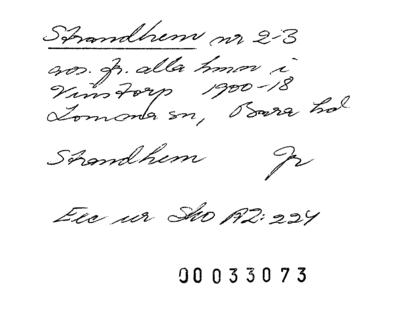 Strandhem nr 2-3
avs. fr. alla hmn i
Vinstorp 1900-18
Lomma sn, Bara hd
Strandhem Gr
Exc ur SkO A2: 224
00033073